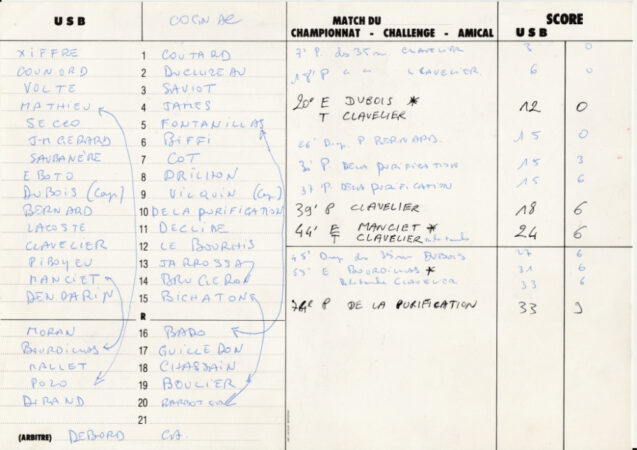 USB COGNAC MATCH DU SCORE
CHAMPIONNAT - CHALLENGE - AMICAL USB
XIFFRE 1 COUTARD
COUNORD 2 DUCLUZEAU
VOLTE 3 SAVIOT
MATHIEU 4 JAMES
SECCO 5 FONTANILLAS
J-M GERARD 6 BIFFI
SAUBANÈRE 7 COT
EBOTO 8 DRILHON
DUBOIS (Cap) 9 VICQUIN (Cap)
BERNARD 10 DE LA PURIFICATION
LACOSTE 11 DECLIDE
CLAVELIER 12 LE BOURHIS
PIBOYEU 13 JARROSSAY
MANCIET 14 BRUGERON
DENDARIN 15 BICHATONS
R
MORAN 16 BADO
BOURDILLAS 17 GUILLEDON
MALLET 18 CHASSAIN
POZO 19 BOULIER
DURAND 20
21
(ARBITRE) DEBORD C.A.
7' P. des 35m CLAVELIER 3 0
18' P " " CLAVELIER 6 0
20' E DUBOIS *
T CLAVELIER 12 0
P BERNARD 15 0
30' P. DE LA PURIFICATION 15 3
37' P. DE LA PURIFICATION 15 6
39' P CLAVELIER 18 6
44' E MANCIET *
T CLAVELIER 24 6
45' Drop des 35m DUBOIS 27 6
55' E BOURDILLAS * 31 6
CLAVELIER 33 6
P DE LA PURIFICATION 33 9